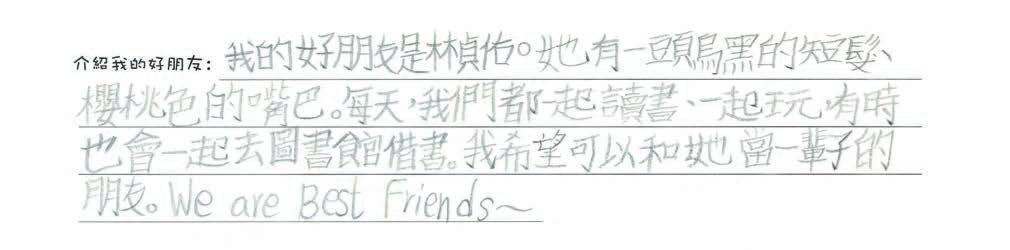 介紹我的好朋友：我的好朋友是林楨佑。她有一頭烏黑的短髮、
櫻桃色的嘴巴。每天，我們都一起讀書、一起玩，有時
也會一起去圖書館借書。我希望可以和她當一輩子的
朋友。We are Best Friends~